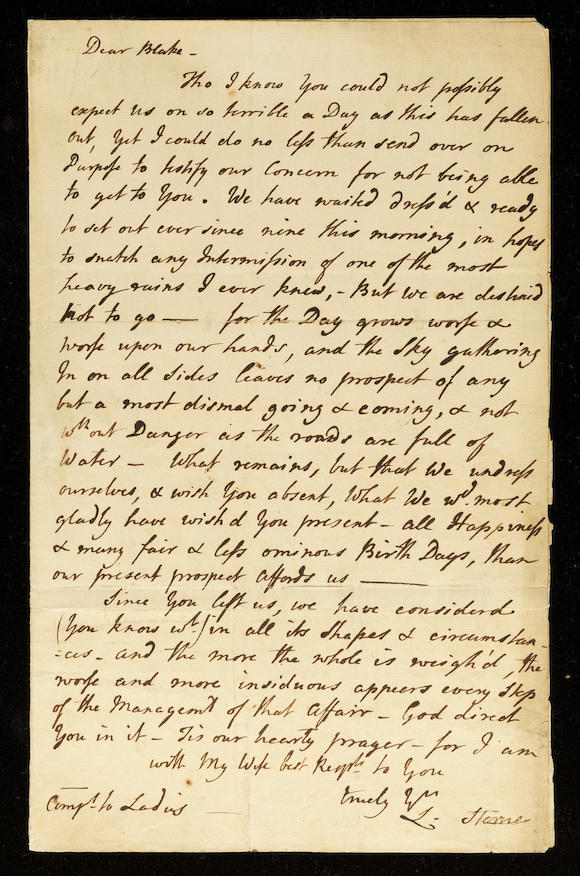 Dear Blake –
Tho I know You could not possibly
expect us on so terrible a Day as this has fallen
out, Yet I could do no less than send over on
Purpose to testify our Concern for not being able
to get to You. We have waited dress'd & ready
to set out ever since nine this morning, in hopes
to snatch any Intermission of one of the most
heavy rains I ever knew, – But we are destined
not to go — for the Day grows worse &
worse upon our hands, and the Sky gathering
In on all Sides leaves no prospect of any
but a most dismal going & coming, & not
wth out Danger as the roads are full of
Water – What remains, but that We undress
ourselves, & wish You absent, What We wd. most
gladly have wish'd You present – all Happiness
& many fair & less ominous Birth Days, than
our present prospect affords us —
Since You left us, we have considerd
(You know wt.) in all its Shapes & circumstan-
-ces – and the more the whole is weigh'd, the
worse and more insiduous appears every Step
of the Managemt of that Affair – God direct
You in it – Tis our hearty prayer – for I am
with My Wife best Respts. to You
truely Yrs
Compts. to Ladies — L. Sterne